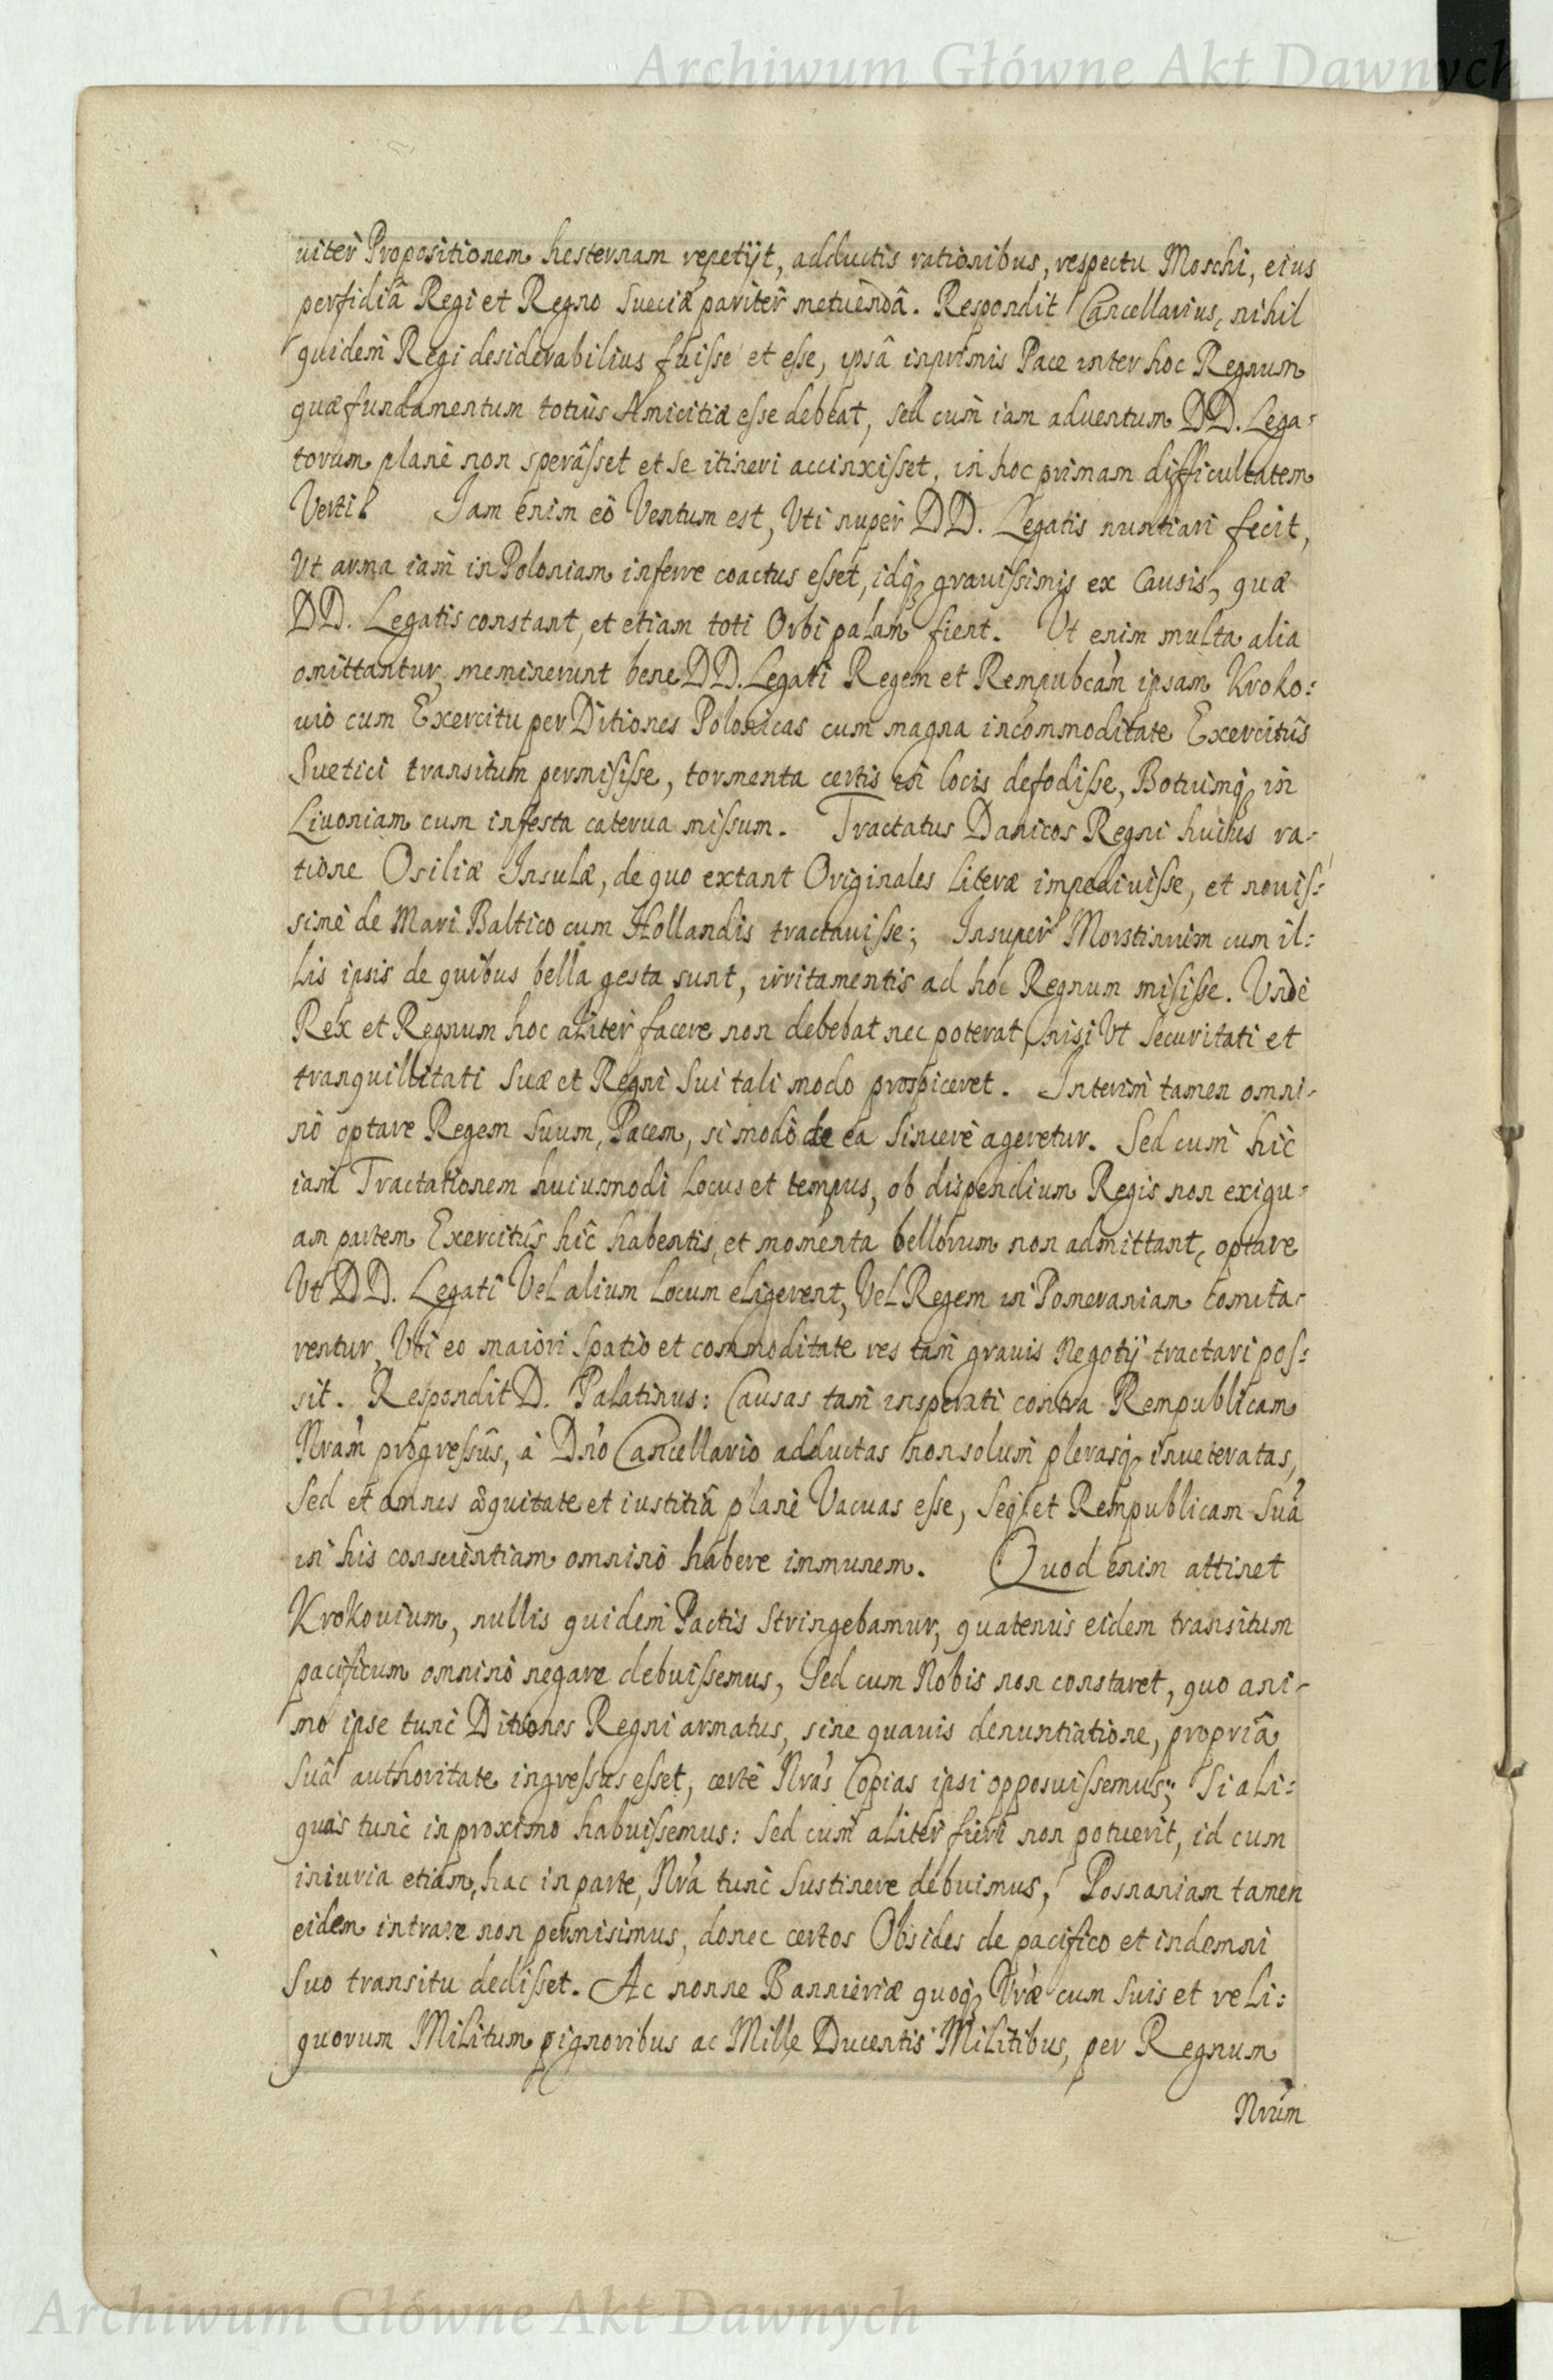 Archiwum Główne Akt Dawnych
uiter Propositionem hesternam repetijt, adductis rationibus, respectu Moschi, eius
perfidiâ Regi et Regno Sueciæ pariter metuendâ. Respondit Cancellarius, nihil
quidem Regi desiderabilius fuisse et esse, ipsâ inprimis Pace inter hoc Regnum
quæ fundamentum totius Amicitiæ esse debeat, sed cum iam aduentum DD. Lega-
torum planè non sperâsset et se itineri accinxisset, in hoc primam difficultatem
Verti. Jam enim eò Ventum est, Vti nuper DD. Legatis nuntiari fecit,
Vt arma iam in Poloniam inferre coactus esset, idq; grauissimis ex Causis, quæ
DD. Legatis constant, et etiam toti Orbi palam fient. Vt enim multa alia
omittantur, meminerunt bene DD. Legati Regem et Rempubcam ipsam Kroko:
uio cum Exercitu per Ditiones Polonicas cum magna incommoditate Exercitûs
Suetici transitum permisisse, tormenta certis in locis defodisse, Botuimq; in
Liuoniam cum infesta caterua missum. Tractatus Danicos Regni huius ra-
tione Osiliæ Insulæ, de quo extant Originales Literæ impediuisse, et nouis-
simè de Mari Baltico cum Hollandis tractauisse; Insuper Morstinium cum il:
lis ipsis de quibus bella gesta sunt, irritamentis ad hoc Regnum misisse. Vnde
Rex et Regnum hoc aliter facere non debebat nec poterat, nisi Vt securitati et
tranquillitati Suæ et Regni Sui tali modo prospiceret. Interim tamen omni-
nò optare Regem Suum, Pacem, si modò de ea Sincerè ageretur. Sed cum hîc
iam Tractationem huiusmodi Locus et tempus, ob dispendium Regis non exigu-
am partem Exercitûs hîc habentis, et momenta bellorum non admittant, optare
Vt DD. Legati Vel alium Locum eligerent, Vel Regem in Pomeraniam comita-
rentur, Vbi eo maiori spatio et commoditate res tam grauis Negotij tractari pos:
sit. Respondit D. Palatinus: Causas tam insperati contra Rempublicam
Nram progressûs, à Dno Cancellario adductas non solum plerasq; inueteratas,
Sed et omnes æquitate et iustitiâ planè Vacuas esse, Seq; et Rempublicam Suâ
in his conscientiam omninò habere immunem. Quod enim attinet
Krokouium, nullis quidem Pactis Stringebamur, quatenus eidem transitum
pacificum omninò negare debuissemus, Sed cum Nobis non constaret, quo ani-
mo ipse tunc Ditiones Regni armatus, sine quauis denuntiatione, propriâ
Suâ authoritate ingressus esset, certè Nras Copias ipsi opposuissemus; Si ali:
quas tunc in proximo habuissemus: Sed cum aliter fieri non potuerit, id cum
iniuria etiam, hac in parte, Nra tunc Sustinere debuimus, Posnaniam tamen
eidem intrare non permisimus, donec certos Obsides de pacifico et indemni
Suo transitu dedisset. Ac nonne Bannieriæ quoq; Vræ cum Suis et reli:
quorum Militum pignoribus ac Mille Ducentis Militibus, per Regnum
Nrum
Archiwum Główne Akt Dawnych